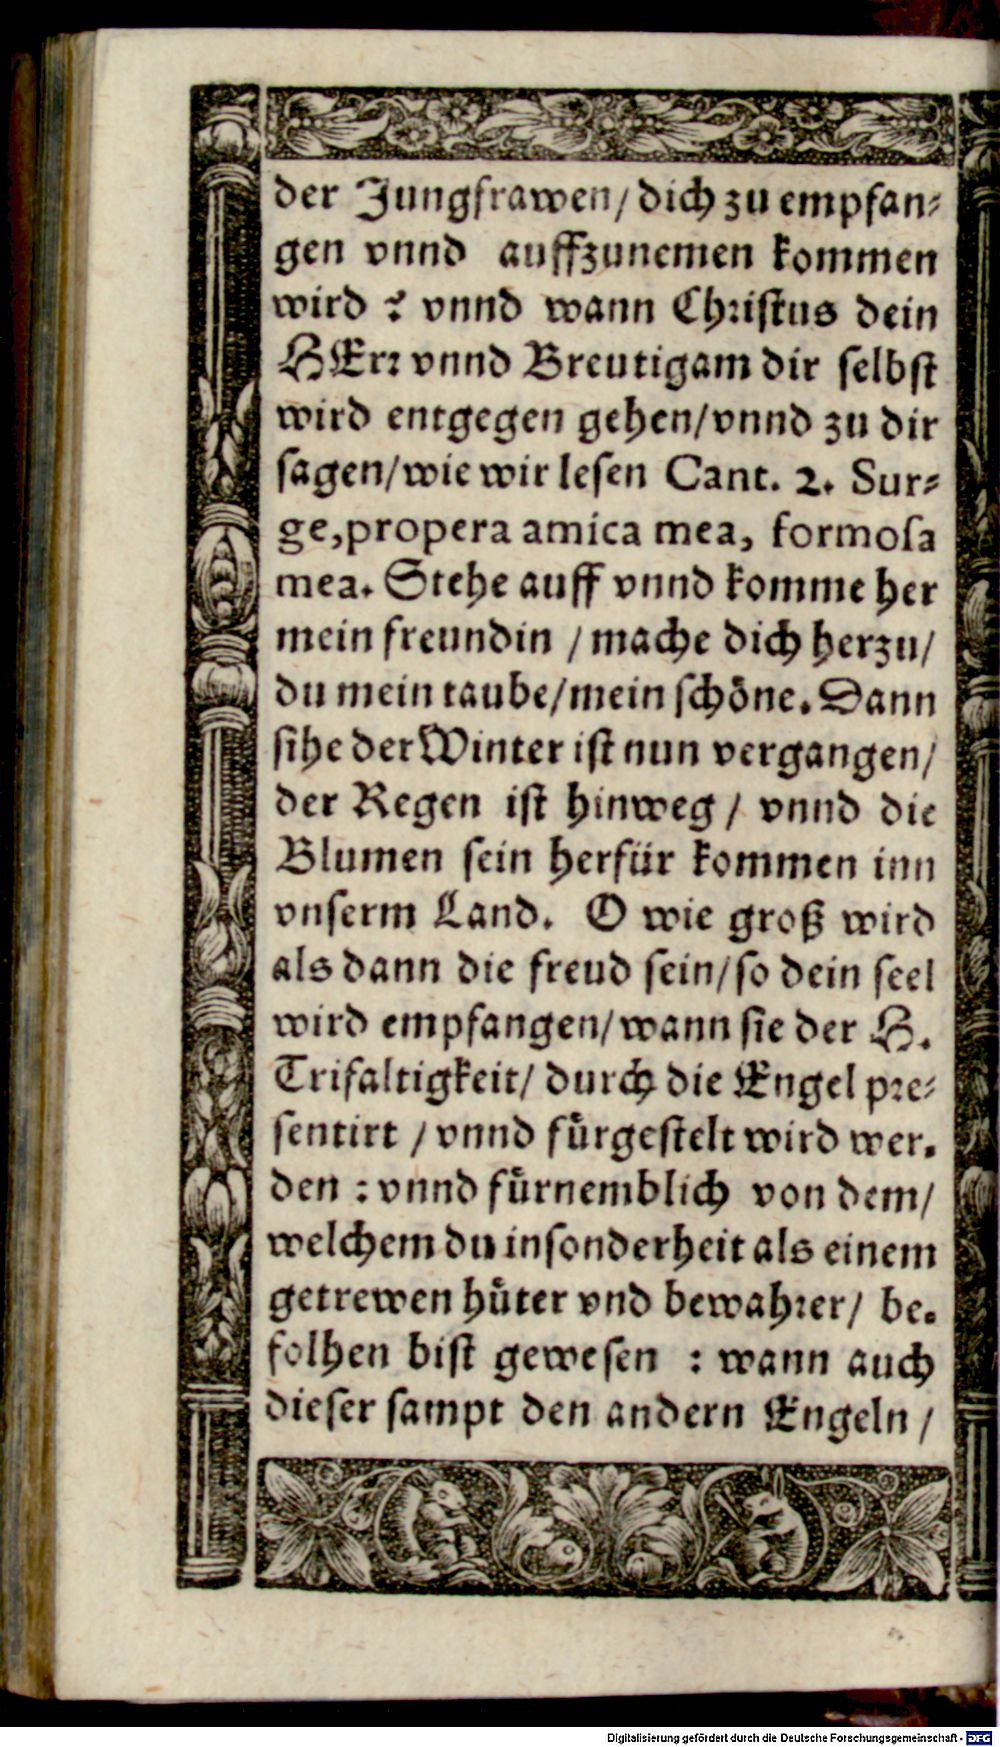 der Jungfrawen/ dich zu empfan⸗
gen vnnd auffzunemen kommen
wird ? vnnd wann Christus dein
HErr vnnd Breutigam dir selbst
wird entgegen gehen/ vnnd zu dir
sagen/ wie wir lesen Cant. 2. Sur⸗
ge, propera amica mea, formosa
mea. Stehe auff vnnd komme her
mein freundin / mache dich herzu/
du mein taube/ mein schoͤne. Dann
sihe der Winter ist nun vergangen/
der Regen ist hinweg / vnnd die
Blumen sein herfür kommen inn
vnserm Land. O wie groß wird
als dann die freud sein/ so dein seel
wird empfangen/ wann sie der H.
Trifaltigkeit/ durch die Engel pre⸗
sentirt / vnnd fuͤrgestelt wird wer.
den : vnnd fuͤrnemblich von dem/
welchem du insonderheit als einem
getrewen huͤter vnd bewahrer/ be.
folhen bist gewesen : wann auch
dieser sampt den andern Engeln /
Digitalisierung gefördert durch die Deutsche Forschungsgemeinschaft - DFG